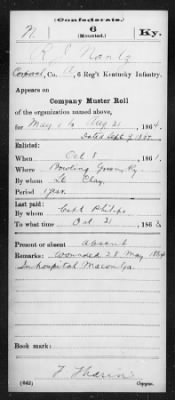 (Confederate.)
N 6 Ky.
(Mounted.)
R. J. Nantz
Corporal, Co. A, 6 Reg't Kentucky Infantry.
Appears on
Company Muster Roll
of the organization named above,
for May 1 to Aug 31, 1864.
Dated Sept 9 1864
Enlisted:
When Oct 8, 1861
Where Bowling Green, Ky
By whom Lt Clay,
Period 1 year
Last paid:
By whom Capt Philips
To what time Oct 31, 1863
Present or absent absent
Remarks: Wounded 28 May 1864
In hospital Macon Ga
Book mark:
(642) Copyist.